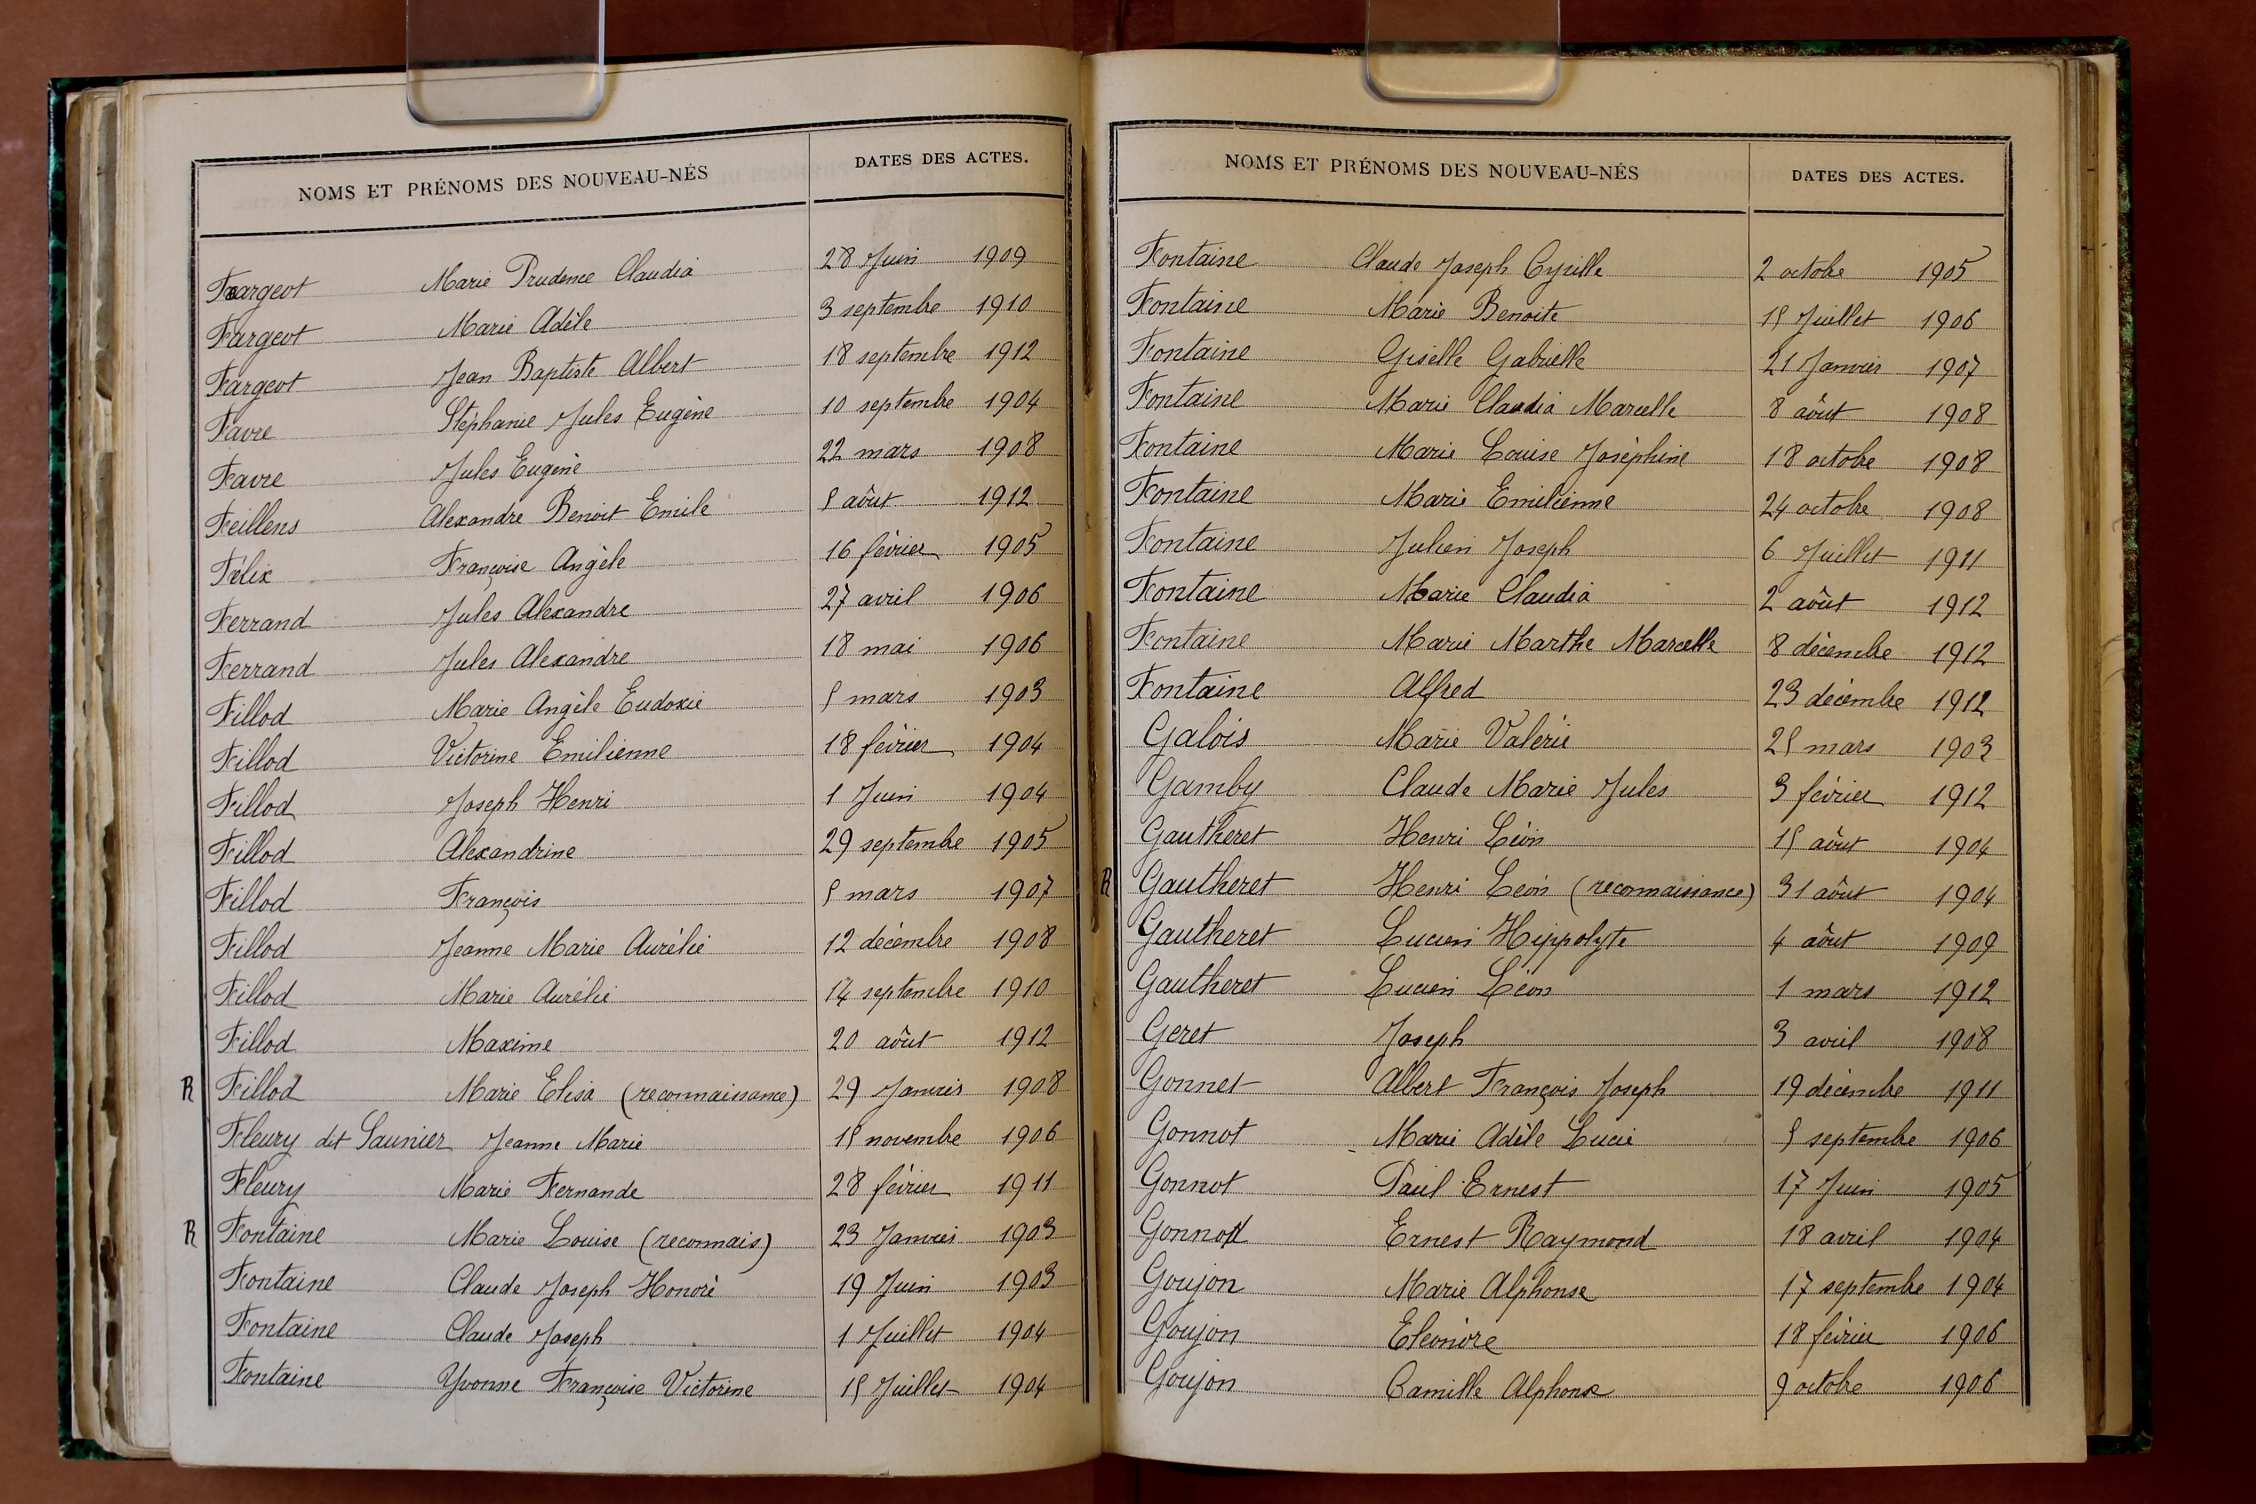 NOMS ET PRÉNOMS DES NOUVEAU-NÉS DATES DES ACTES.
Fargeot Marie Prudence Claudia 28 Juin 1909
Fargeot Marie Adèle 3 septembre 1910
Fargeot Jean Baptiste Albert 18 septembre 1912
Favre Stéphanie Jules Eugène 10 septembre 1904
Favre Jules Eugène 22 mars 1908
Feillens Alexandre Benoit Emile 5 aôut 1912
Félix Françoise Angèle 16 février 1905
Ferrand Jules Alexandre 27 avril 1906
Ferrand Jules Alexandre 18 mai 1906
Fillod Marie Angèle Eudoxie 5 mars 1903
Fillod Victorine Emilienne 18 février 1904
Fillod Joseph Henri 1 Juin 1904
Fillod Alexandrine 29 septembre 1905
Fillod François 5 mars 1907
Fillod Jeanne Marie Aurélie 12 décembre 1908
Fillod Marie Aurélie 14 septembre 1910
Fillod Maxime 20 aôut 1912
R Fillod Marie Elisa (reconnaissance) 29 Janvier 1908
Fleury dit Saunier Jeanne Marie 15 novembre 1906
Fleury Marie Fernande 28 février 1911
R Fontaine Marie Louise (reconnais) 23 Janvier 1903
Fontaine Claude Joseph Honoré 19 Juin 1903
Fontaine Claude Joseph 1 Juillet 1904
Fontaine Yvonne Françoise Victorine 15 Juillet 1904
NOMS ET PRÉNOMS DES NOUVEAU-NÉS DATES DES ACTES.
Fontaine Claude Joseph Cyrille 2 octobre 1905
Fontaine Marie Benoite 15 Juillet 1906
Fontaine Giselle Gabrielle 21 Janvier 1907
Fontaine Marie Claudia Marcelle 8 aôut 1908
Fontaine Marie Louise Joséphine 18 octobre 1908
Fontaine Marie Emilienne 24 octobre 1908
Fontaine Julien Joseph 6 Juillet 1911
Fontaine Marie Claudia 2 aôut 1912
Fontaine Marie Marthe Marcelle 8 décembre 1912
Fontaine Alfred 23 décembre 1912
Galois Marie Valérie 25 mars 1903
Gamby Claude Marie Jules 3 février 1912
Gautheret Henri Léon 15 aôut 1904
R Gautheret Henri Léon (reconnaissance) 31 aôut 1904
Gautheret Lucien Hippolyte 4 aôut 1909
Gautheret Lucien Léon 1 mars 1912
Geret Joseph 3 avril 1908
Gonnet Albert François Joseph 19 décembre 1911
Gonnot Marie Adèle Lucie 5 septembre 1906
Gonnot Paul Ernest 17 Juin 1905
Gonnot Ernest Raymond 18 avril 1904
Goujon Marie Alphonse 17 septembre 1904
Goujon Eléonore 18 février 1906
Goujon Camille Alphonse 9 octobre 1906